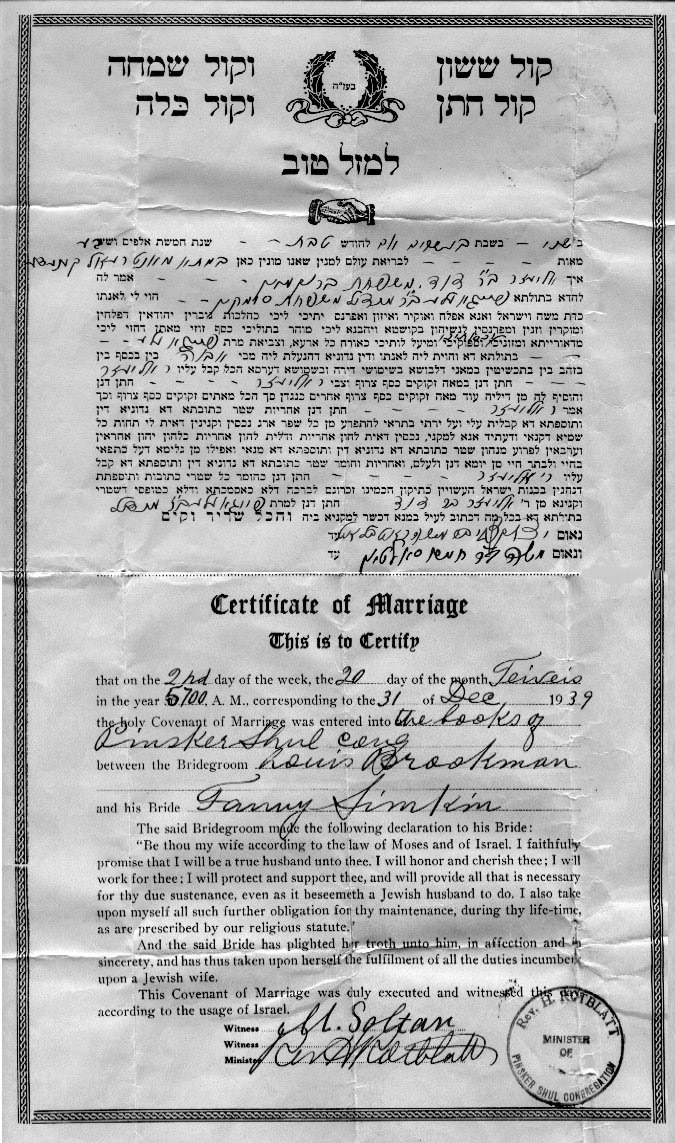 קול ששון וקול שמחה
בעז״ה
קול חתן וקול כלה
למזל טוב
בשבת לחודש טבת שנת חמשת אלפים ושבע
מאות לבריאת עולם למנין שאנו מונין כאן
איך אליעזר ב״ר דוד משפחת אמר לה
להדא בתולתא משפחת הוי לי לאנתו
כדת משה וישראל ואנא אפלח ואוקיר ואיזון ואפרנס יתיכי ליכי כהלכות גוברין יהודאין דפלחין
ומוקרין וזנין ומפרנסין לנשיהון בקושטא ויהבנא ליכי מוהר בתוליכי כסף זוזי מאתן דחזי ליכי
מדאורייתא ומזוניכי וסיפוקיכי ומיעל לותיכי כאורח כל ארעא, וצביאת מרת
בתולתא דא והות ליה לאנתו ודין נדוניא דהנעלת ליה מבי אבוה בין בכסף בין
בזהב בין בתכשיטין במאני דלבושא בשימושי דירה ובשמושא דערסא הכל קבל עליו ר׳ אליעזר
חתן דנן במאה זקוקים כסף צרוף וצבי ר׳ אליעזר חתן דנן
והוסיף לה מן דיליה עוד מאה זקוקים כסף צרוף אחרים כנגדן סך הכל מאתים זקוקים כסף צרוף וכך
אמר ר׳ אליעזר חתן דנן אחריות שטר כתובתא דא נדוניא דין
ותוספתא דא קבלית עלי ועל ירתי בתראי להתפרע מן כל שפר ארג נכסין וקנינין דאית לי תחות כל
שמיא דקנאי ודעתיד אנא למקני, נכסין דאית להון אחריות ודלית להון אחריות כלהון יהון אחראין
וערבאין לפרוע מנהון שטר כתובתא דא נדוניא דין ותוספתא דא מנאי ואפילו מן גלימא דעל כתפאי
בחיי ולבתר חיי מן יומא דנן ולעלם, ואחריות וחומר שטר כתובתא דא נדוניא דין ותוספתא דא קבל
עליו ר׳ אליעזר חתן דנן כחומר כל שטרי כתובות ותוספתת
דנהגין בבנות ישראל העשויין כתיקון חכמינו זכרונם לברכה דלא כאסמכתא ודלא כטופסי דשטרי
וקנינא מן ר׳ אליעזר בר דוד חתן דנן למרת
בתולתא דא בכל מה דכתוב לעיל במנא דכשר למקניא ביה והכל שריר וקים
נאום עד
ונאום עד
Certificate of Marriage
This is to Certify
that on the 2nd day of the week, the 20 day of the month Teiveis
in the year 5700, A. M., corresponding to the 31 of Dec 1939
the holy Covenant of Marriage was entered into the books of
Pinsker Shul cong
between the Bridegroom Louis Brookman
and his Bride Fanny Simkin
The said Bridegroom made the following declaration to his Bride:
"Be thou my wife according to the law of Moses and of Israel. I faithfully
promise that I will be a true husband unto thee. I will honor and cherish thee; I will
work for thee; I will protect and support thee, and will provide all that is necessary
for thy due sustenance, even as it beseemeth a Jewish husband to do. I also take
upon myself all such further obligation for thy maintenance, during thy life-time,
as are prescribed by our religious statute."
And the said Bride has plighted her troth unto him, in affection and in
sincerety, and has thus taken upon herself the fulfilment of all the duties incumbent
upon a Jewish wife.
This Covenant of Marriage was duly executed and witnessed this day
according to the usage of Israel.
Witness M. Soltan
Witness
Minister Rev H Rotblatt
Rev. H. ROTBLATT
MINISTER
OF
PINSKER SHUL CONGREGATION